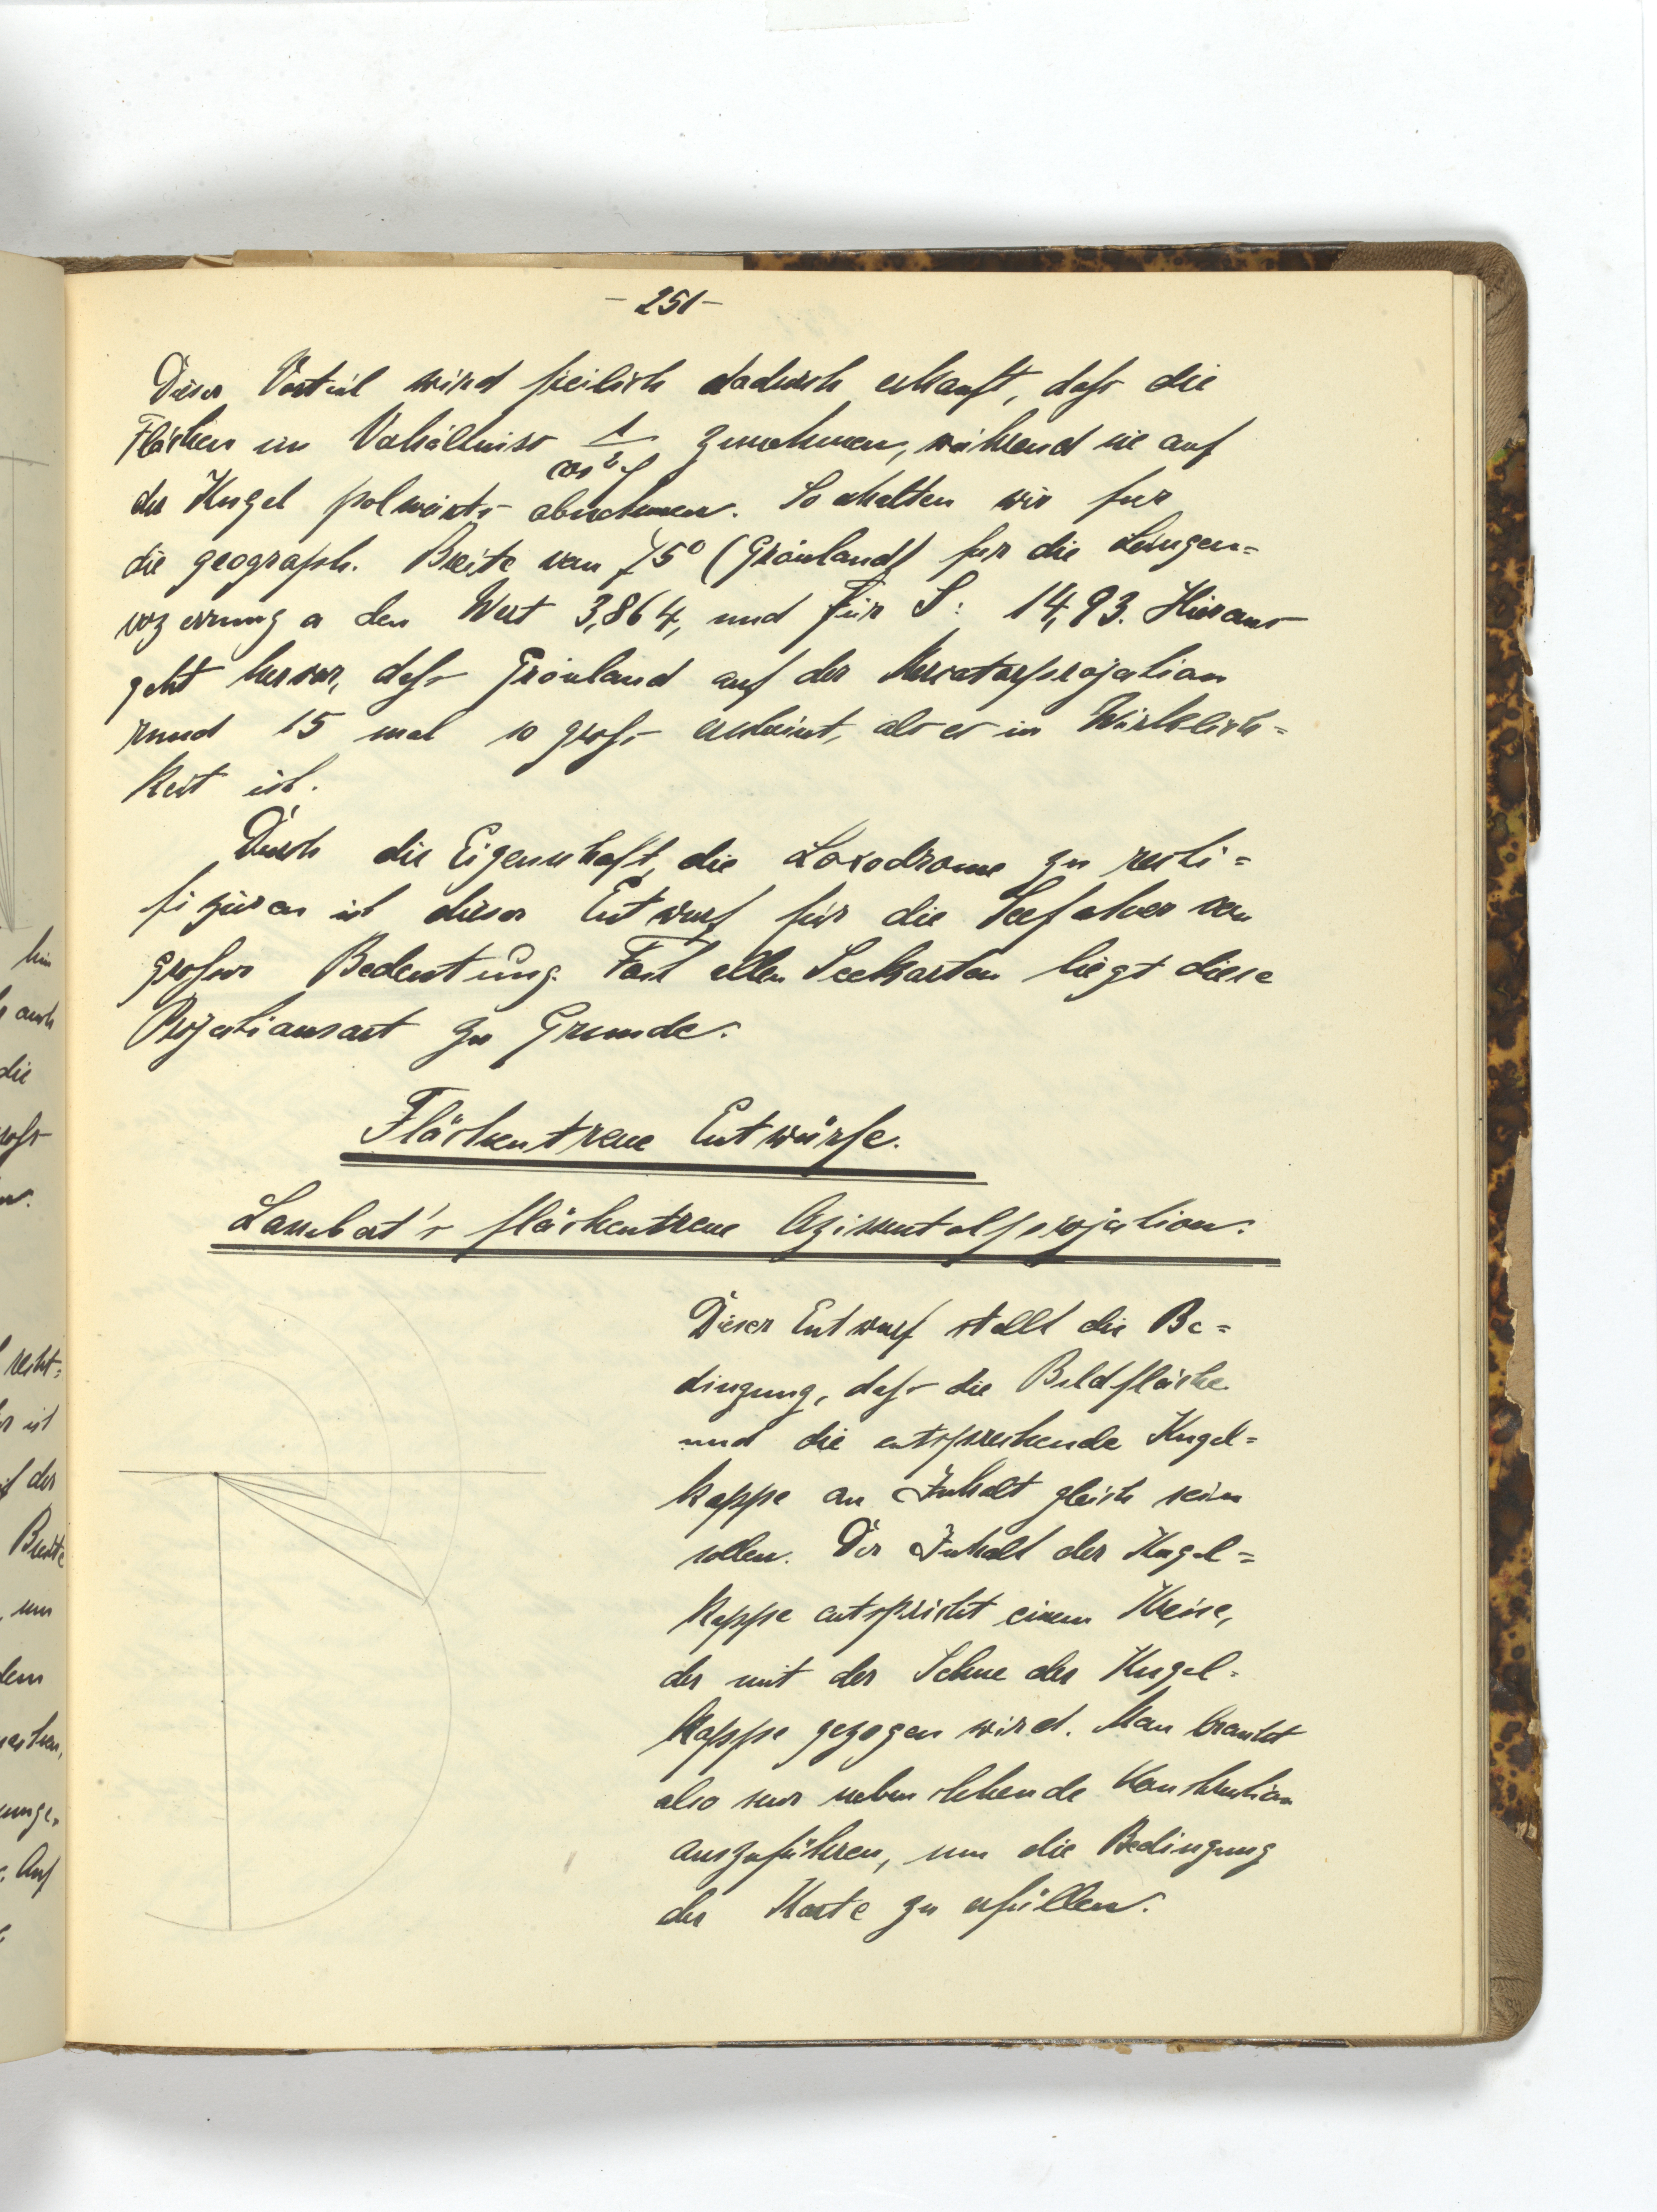 - 251 -
Dieser Vorteil wird freilich dadurch erkauft, daß die
Flächen im Verhältniss 1/cos²φ zunehmen, während sie auf
der Kugel polwärts abnehmen. So erhalten wir für
die geograph. Breite von 75° (Grönland) für die Längen=
verzerrung a den Wert 3,864, und für S: 14,93. Hieraus
geht hervor, daß Grönland auf der Merkatorprojektion
rund 15 mal so groß erscheint, als es in Wirklich=
keit ist.
Durch die Eigenschaft, die Loxodrome zu rekti=
fizieren ist dieser Entwurf für die Seefahrer von
großer Bedeutung. Fast allen Seekarten liegt diese
Projektionsart zu Grunde.
Flächentreue Entwürfe.
Lambert's flächentreue Azimutalprojektion.
Dieser Entwurf stellt die Be=
dingung, daß die Bildfläche
und die entsprechende Kugel=
kappe an Inhalt gleich sein
sollen. Der Inhalt der Kugel=
kappe entspricht einem Kreise,
der mit der Sehne der Kugel=
kappe gezogen wird. Man braucht
also nur nebenstehende Konstruktion
auszuführen, um die Bedingung
der Karte zu erfüllen.
hin
auch
die
recht=
ist
der
Breite
um
dem
Auf